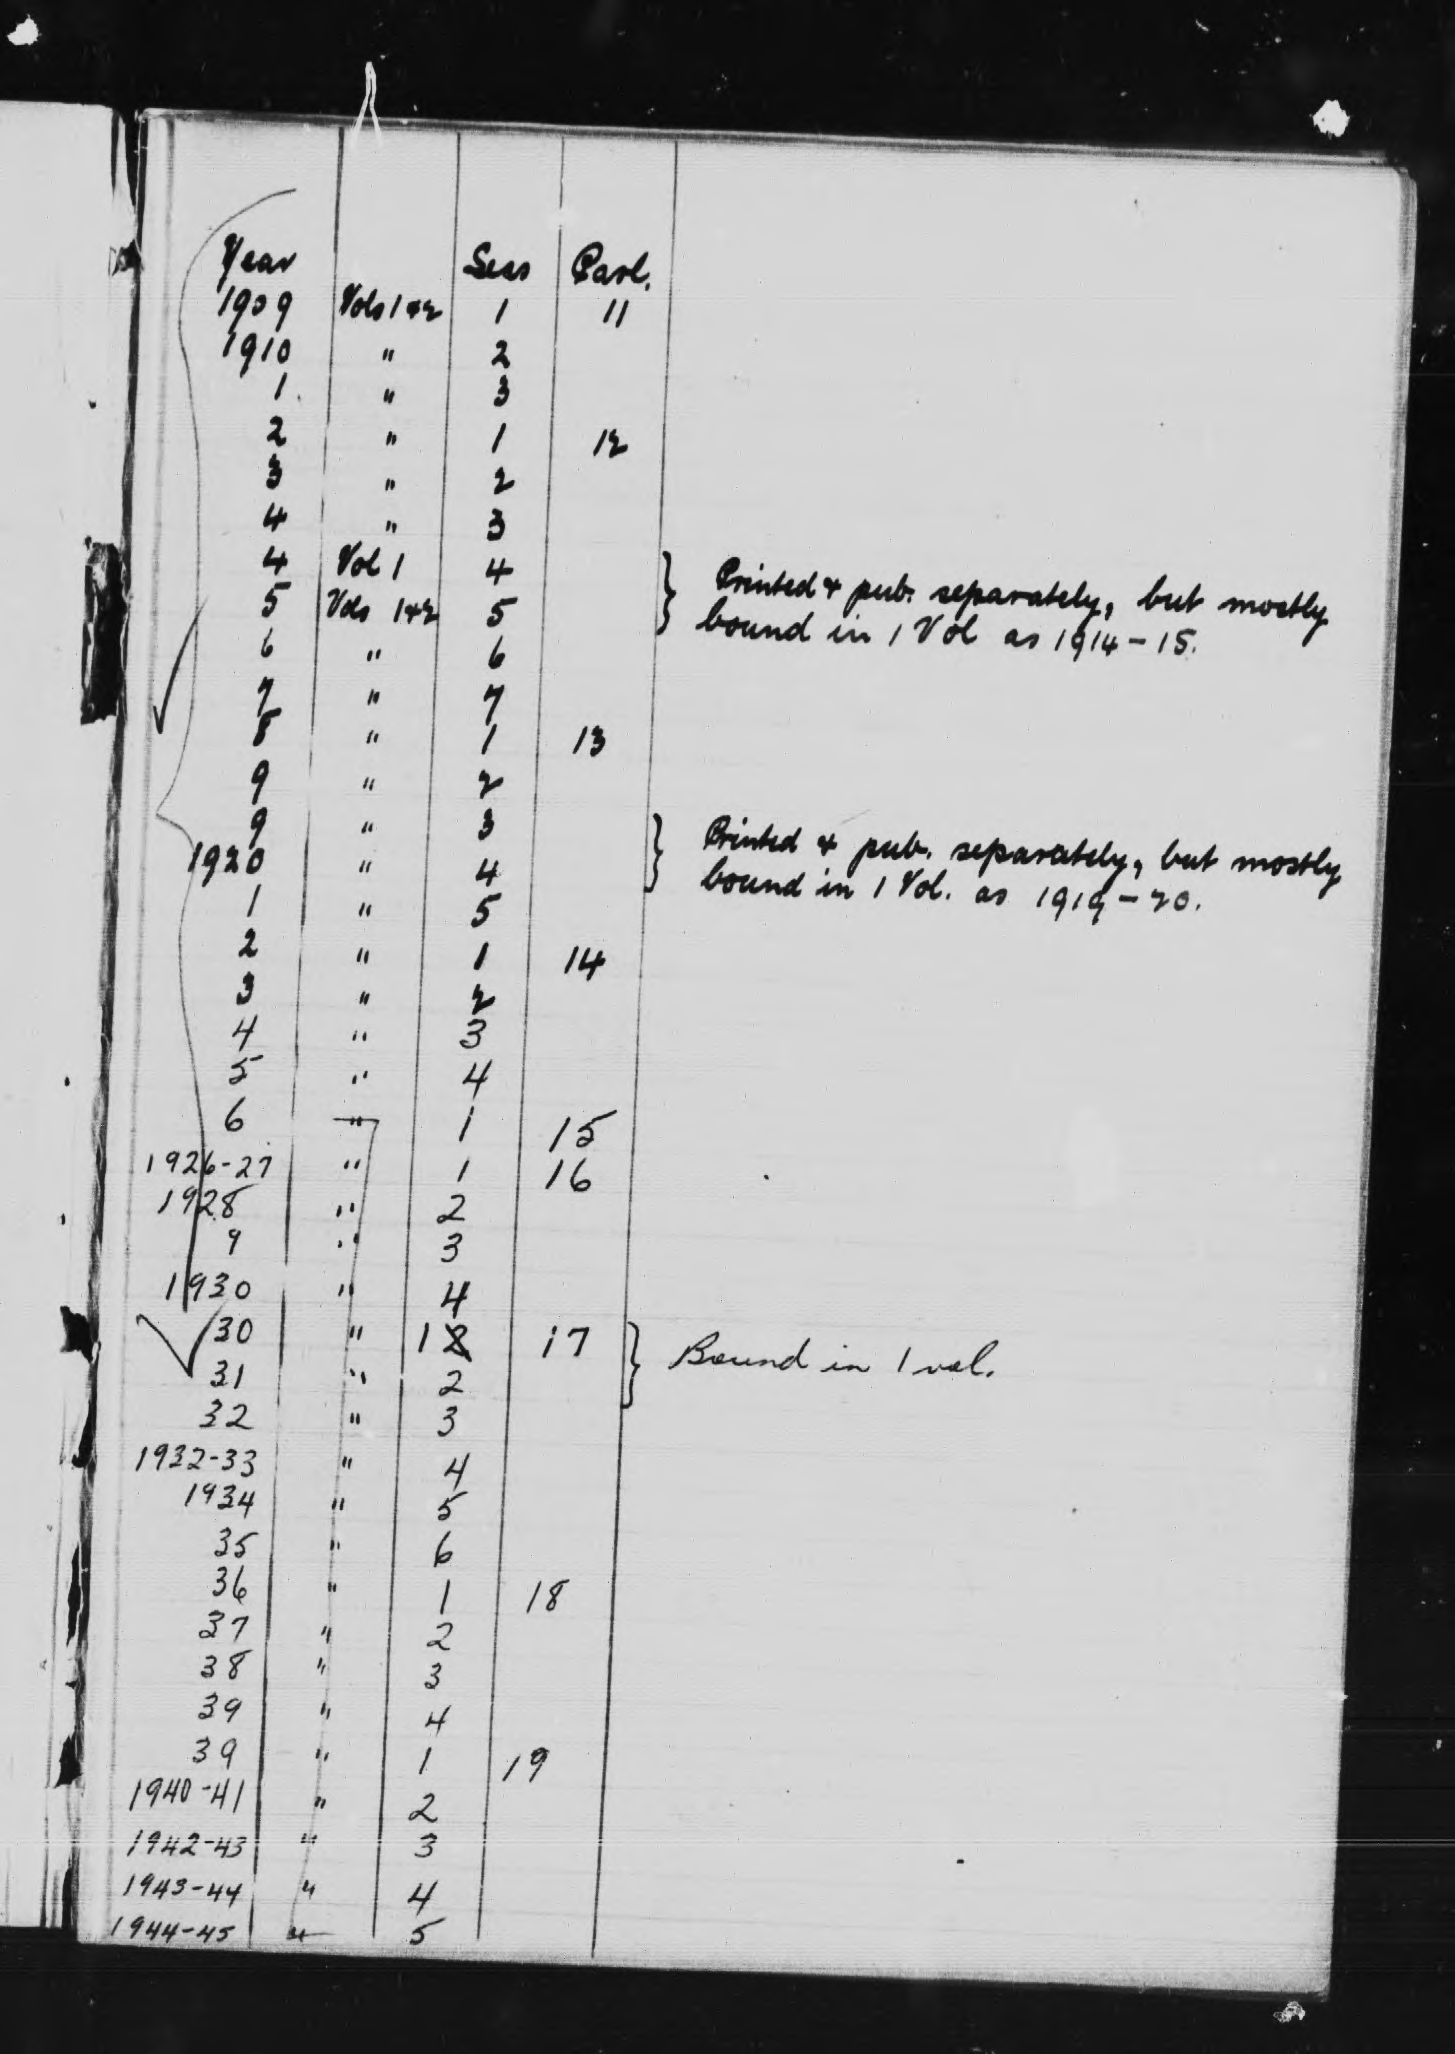 Year Sess Parl.
1909 Vols 1 & 2 1 11
1910 " 2
1 " 3
2 " 1 12
3 " 2
4 " 3
4 Vol 1 4 } Printed & pub. separately, but mostly
5 Vols 1 & 2 5 bound in 1 Vol as 1914-15.
6 " 6
7 " 7
8 " 1 13
9 " 2
9 " 3 } Printed & pub. separately, but mostly
1920 " 4 bound in 1 Vol. as 1919-20.
1 " 5
2 " 1 14
3 " 2
4 " 3
5 " 4
6 " 1 15
1926-27 " 1 16
1928 " 2
9 " 3
1930 " 4
30 " 1 2 17 } Bound in 1 vol.
31 " 2
32 " 3
1932-33 " 4
1934 " 5
35 " 6
36 " 1 18
37 " 2
38 " 3
39 " 4
39 " 1 19
1940-41 " 2
1942-43 " 3
1943-44 " 4
1944-45 " 5